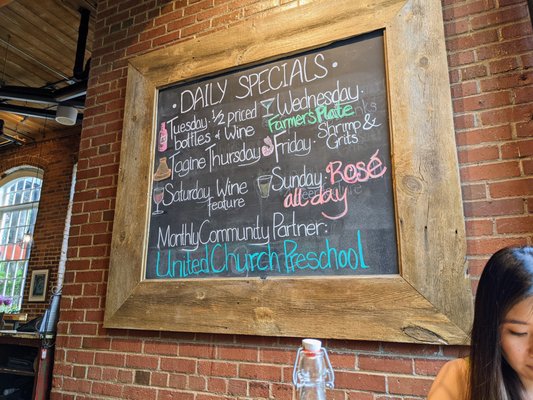 • DAILY SPECIALS •
Tuesday · 1/2 priced
bottles & Wine
Wednesday ·
Farmer's Plate
Tagine Thursday
Friday · Shrimp &
Grits
Saturday · Wine
feature
Sunday · Rosé
all day
Monthly Community Partner:
United Church Preschool